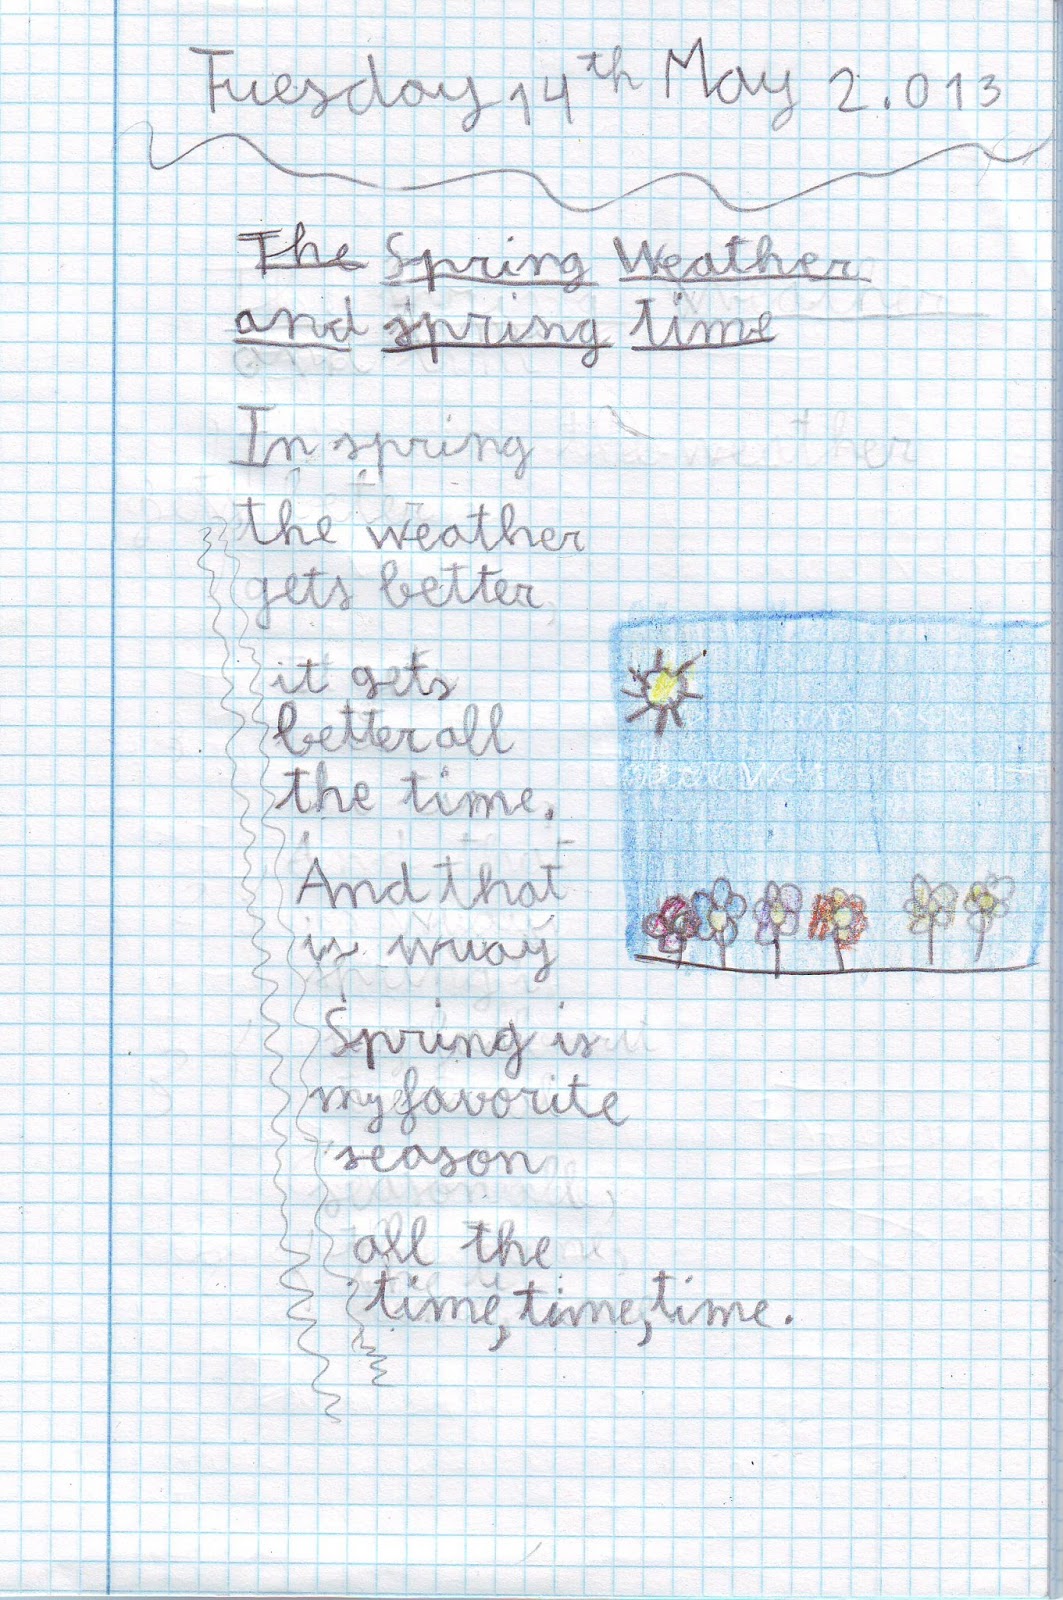 Tuesday 14th May 2.013
The Spring Weather
and spring time
In spring
the weather
gets better,
it gets
better all
the time.
And that
is wuay
Spring is
my favorite
season
all the
time, time, time.